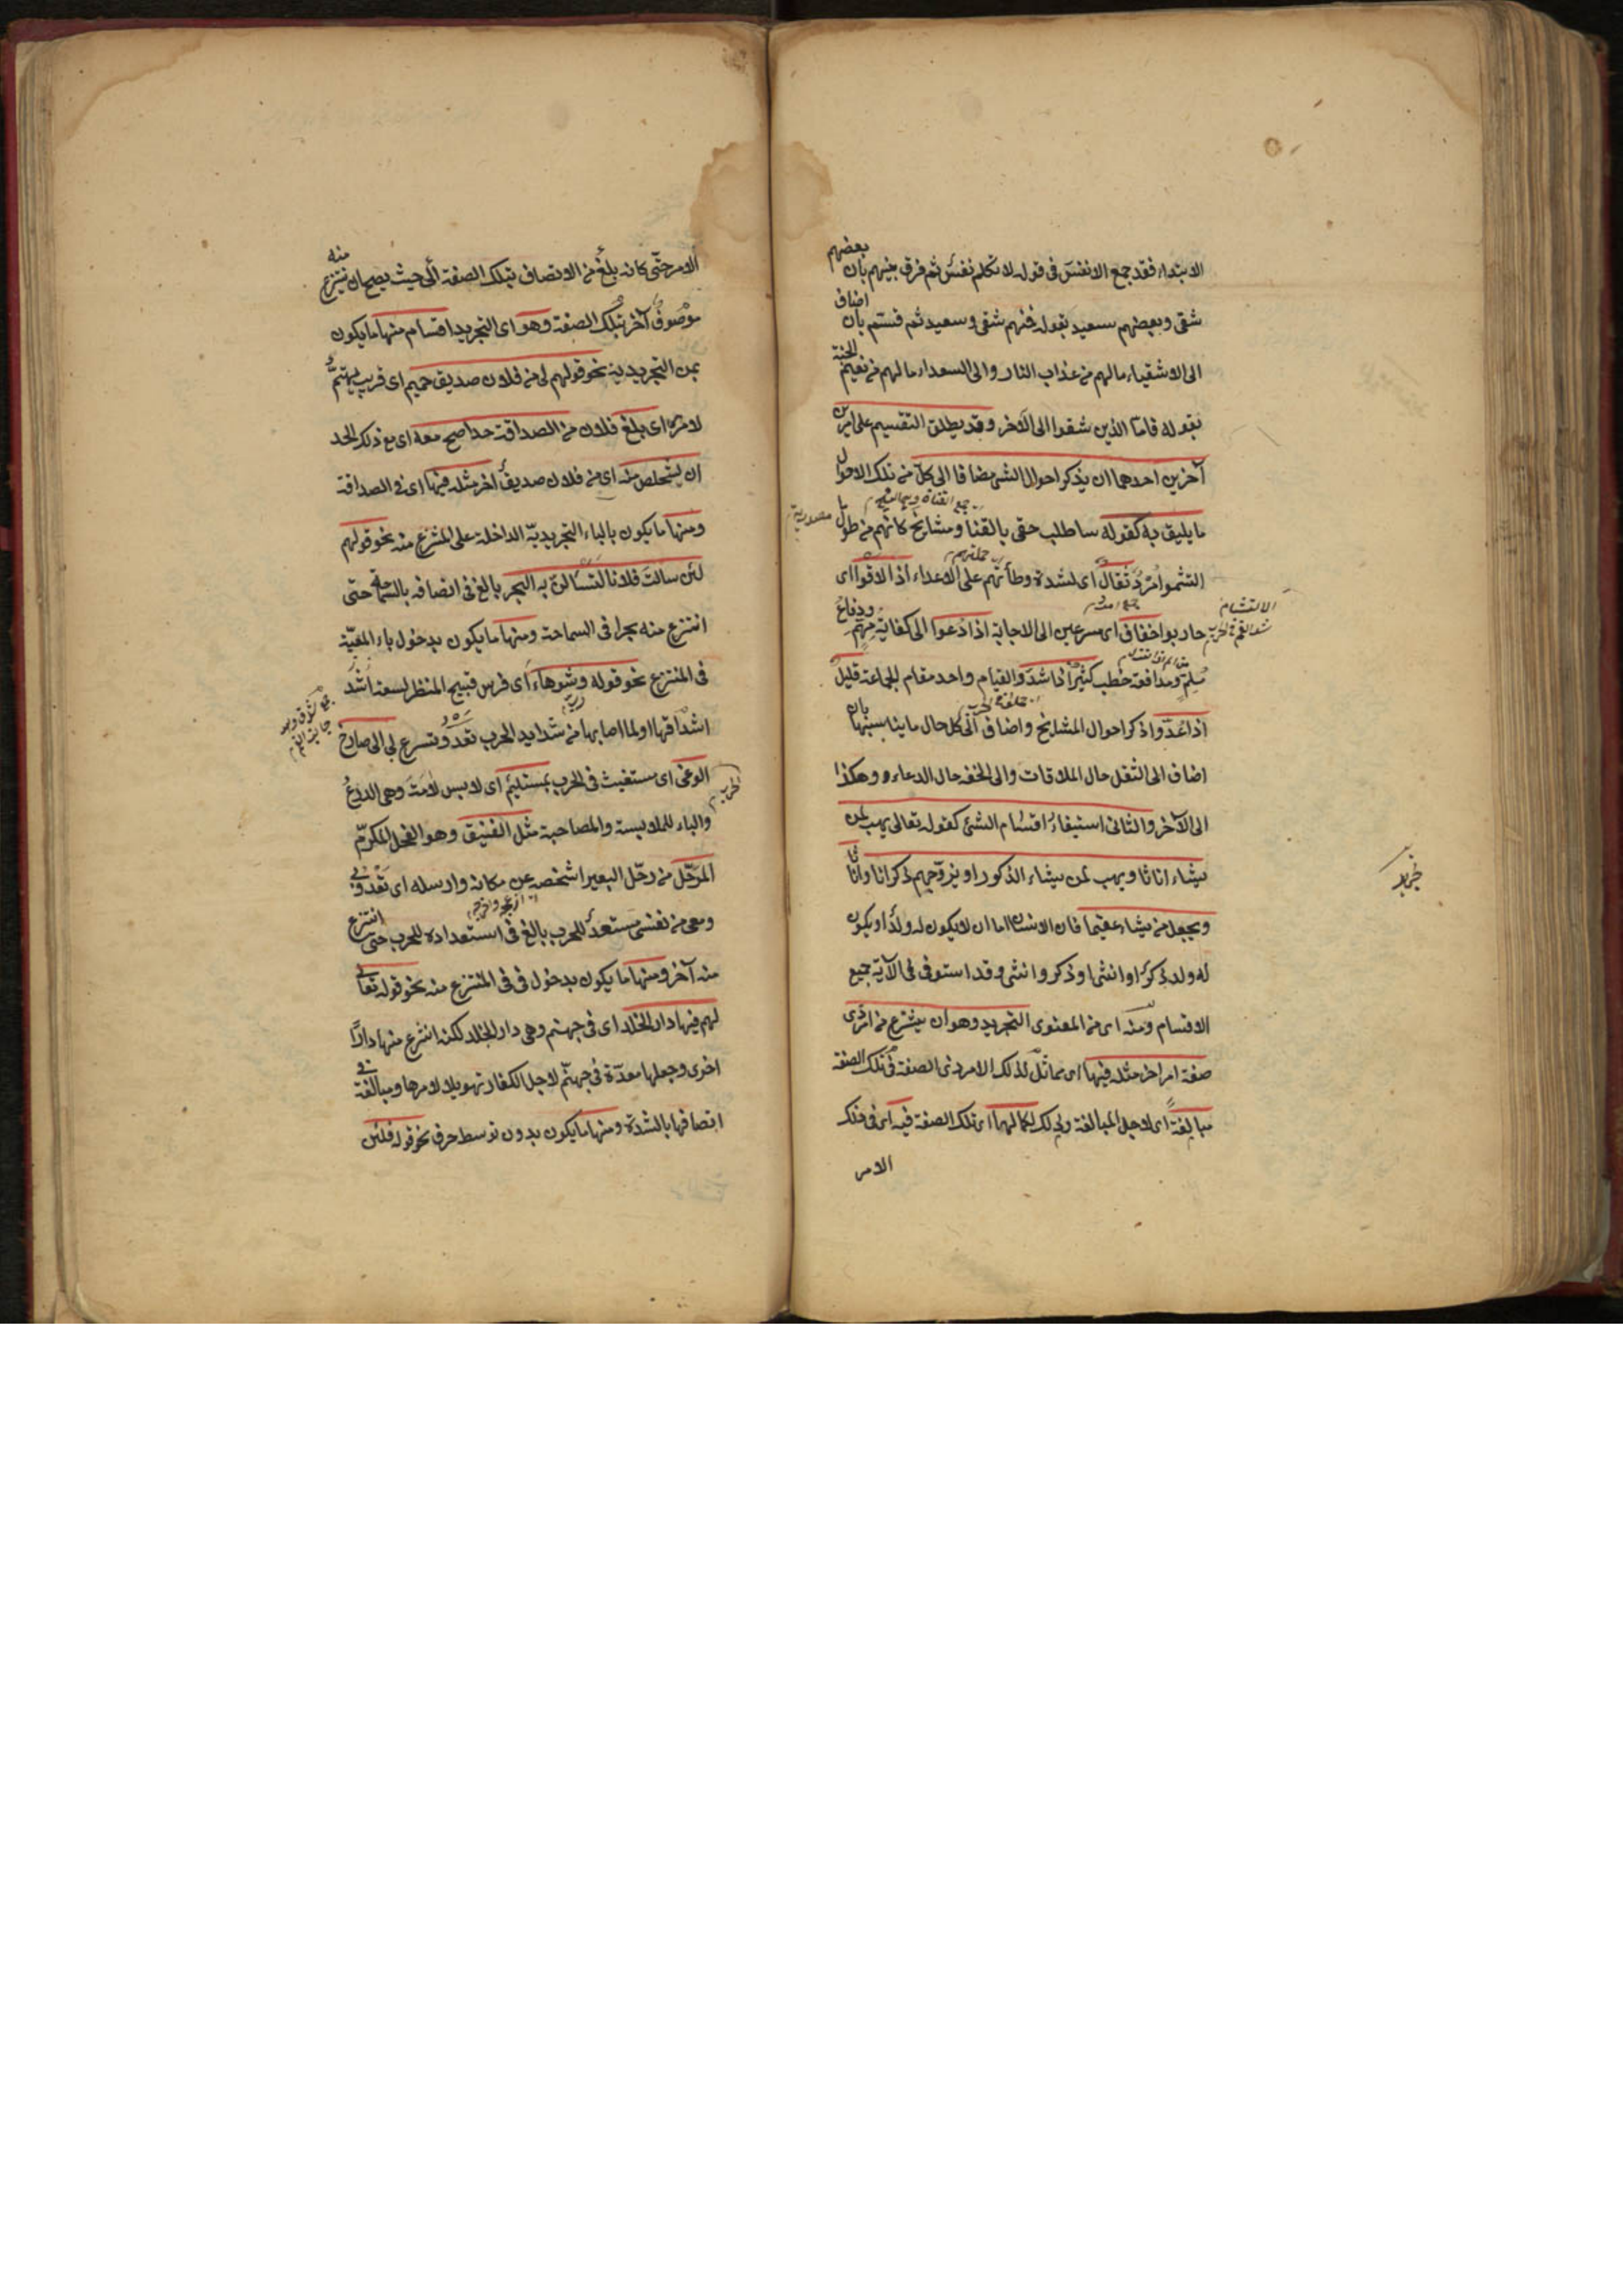 الابتداء فقد جمع الانفس فى قوله لا تكلم نفس ثم فرق بينهم بان بعضهم
شقى وبعضهم سعيد بقوله فمنهم شقى وسعيد ثم قسم بان اضاف
الى الاشقياء ما لهم من عذاب النار والى السعداء ما لهم من نعيم الجنة
بقوله فاما الذين شقوا الى الآخر وقد يطلق التقسيم على امرين
آخرين احدهما ان يذكر احوال الشئ مضافا الى كل من تلك الاحوال
ما يليق به كقوله ساطلب حقى بالقنا ومشايخ كانهم من طول ما
جمع القناة
مصدرية
التثموا مرد ثقال اى لشدة وطأتهم على الاعداء اذا لاقوا اى
حملتهم
حاربوا خفاف اى مسرعين الى الاجابة اذا دعوا الى كفاية مهم ودفاع
الالتثام
ملم ومدافعة خطب كثير اذا شدوا لقيام واحد مقام الجماعة قليل
اذا عدوا ذكر احوال المشايخ واضاف الى كل حال ما يناسبها بان
اضاف الى الثقل حال الملاقات والى الخفة حال الدعاء وهكذا
الى الآخر والثانى استيفاء اقسام الشئ كقوله تعالى يهب لمن
يشاء اناثا ويهب لمن يشاء الذكور او يزوجهم ذكرانا واناثا
ويجعل من يشاء عقيما فان الانسان اما ان لا يكون له ولد او يكون
له ولد ذكر او انثى او ذكر وانثى وقد استوفى فى الآية جميع
الاقسام ومنه اى من المعنوى التجريد وهو ان ينتزع من امر ذى
صفة امر اخر مثله فيها اى مماثل لذلك الامر ذى الصفة فى تلك الصفة
مبالغة اى لاجل المبالغة وذلك لكمالها اى تلك الصفة فيه اى فى ذلك
الامر
الامر حتى كانه بلغ من الاتصاف بتلك الصفة الى حيث يصح ان ينتزع منه
موصوف آخر بتلك الصفة وهو اى التجريد اقسام منها ما يكون
بمن التجريدية نحو قولهم لى من فلان صديق حميم اى قريب يهتم
لامره اى بلغ فلان من الصداقة حدا صح معه اى مع ذلك الحد
ان يستخلص منه اى من فلان صديق آخر مثله فيها اى فى الصداقة
ومنها ما يكون بالباء التجريدية الداخلة على المنتزع منه نحو قولهم
لئن سالت فلانا لتسألن به البحر بالغ فى اتصافه بالسماحة حتى
انتزع منه بحرا فى السماحة ومنها ما يكون بدخول باء المعية
فى المنتزع نحو قوله وشوهاء اى فرس قبيح المنظر لسعة
اشداقها او لما اصابها من شدايد الحرب تعدو تسرع بى الى صارخ
الوغى اى مستغيث فى الحرب بمستلئم اى لابس لامة وهى الدرع
الحرب
والباء للملابسة والمصاحبة مثل الفنيق وهو الفحل المكرم
المرحل من رحل البعير اشخصه عن مكانه وارسله اى تعدو بى
ومعى من نفسى مستعد للحرب بالغ فى استعداده للحرب حتى انتزع
منه آخر ومنها ما يكون بدخول فى فى المنتزع منه نحو قوله تعالى
لهم فيها دار الخلد اى فى جهنم وهى دار الخلد لكنه انتزع منها دارا
اخرى وجعلها معدة فى جهنم لاجل الكفار تهويلا لامرها ومبالغة فى
اتصافها بالشدة ومنها ما يكون بدون توسط حرف نحو قوله فلئن